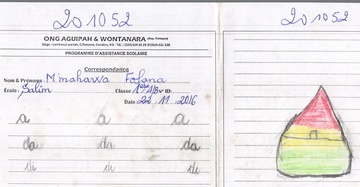 201052
201052
ONG AGUIPAH & WONTANARA
PROGRAMME D'ASSISTANCE SCOLAIRE
Correspondance
Nom & Prénoms M'mahawa Fofana
École: Salim Classe 1ère N° ID:
Date 22 11 2016
a a a
da da da
di di di